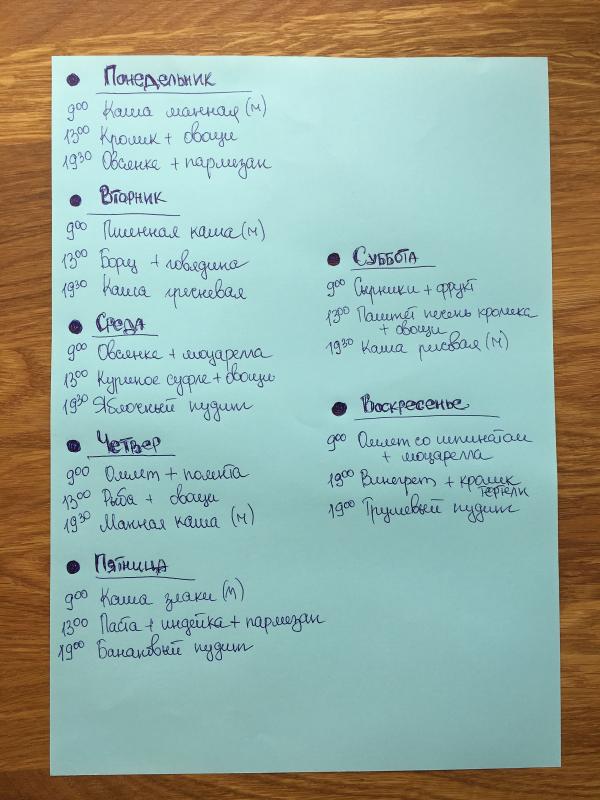 Понедельник
9⁰⁰ Каша манная (м)
13⁰⁰ Кролик + овощи
19³⁰ Овсянка + пармезан
Вторник
9⁰⁰ Пшенная каша (м)
13⁰⁰ Борщ + говядина
19³⁰ Каша гречневая
Среда
9⁰⁰ Овсянка + моцарелла
13⁰⁰ Куриное суфле + овощи
19³⁰ Яблочный пудинг
Четвер
9⁰⁰ Омлет + полента
13⁰⁰ Рыба + овощи
19³⁰ Манная каша (м)
Пятница
9⁰⁰ Каша злаки (м)
13⁰⁰ Паста + индейка + пармезан
19⁰⁰ Банановый пудинг
Суббота
9⁰⁰ Сырники + фрукт
13⁰⁰ Паштет печень кролика
+ овощи
19³⁰ Каша рисовая (м)
Воскресенье
9⁰⁰ Омлет со шпинатом
+ моцарелла
19⁰⁰ Винегрет + кролик
19⁰⁰ Грушевый пудинг